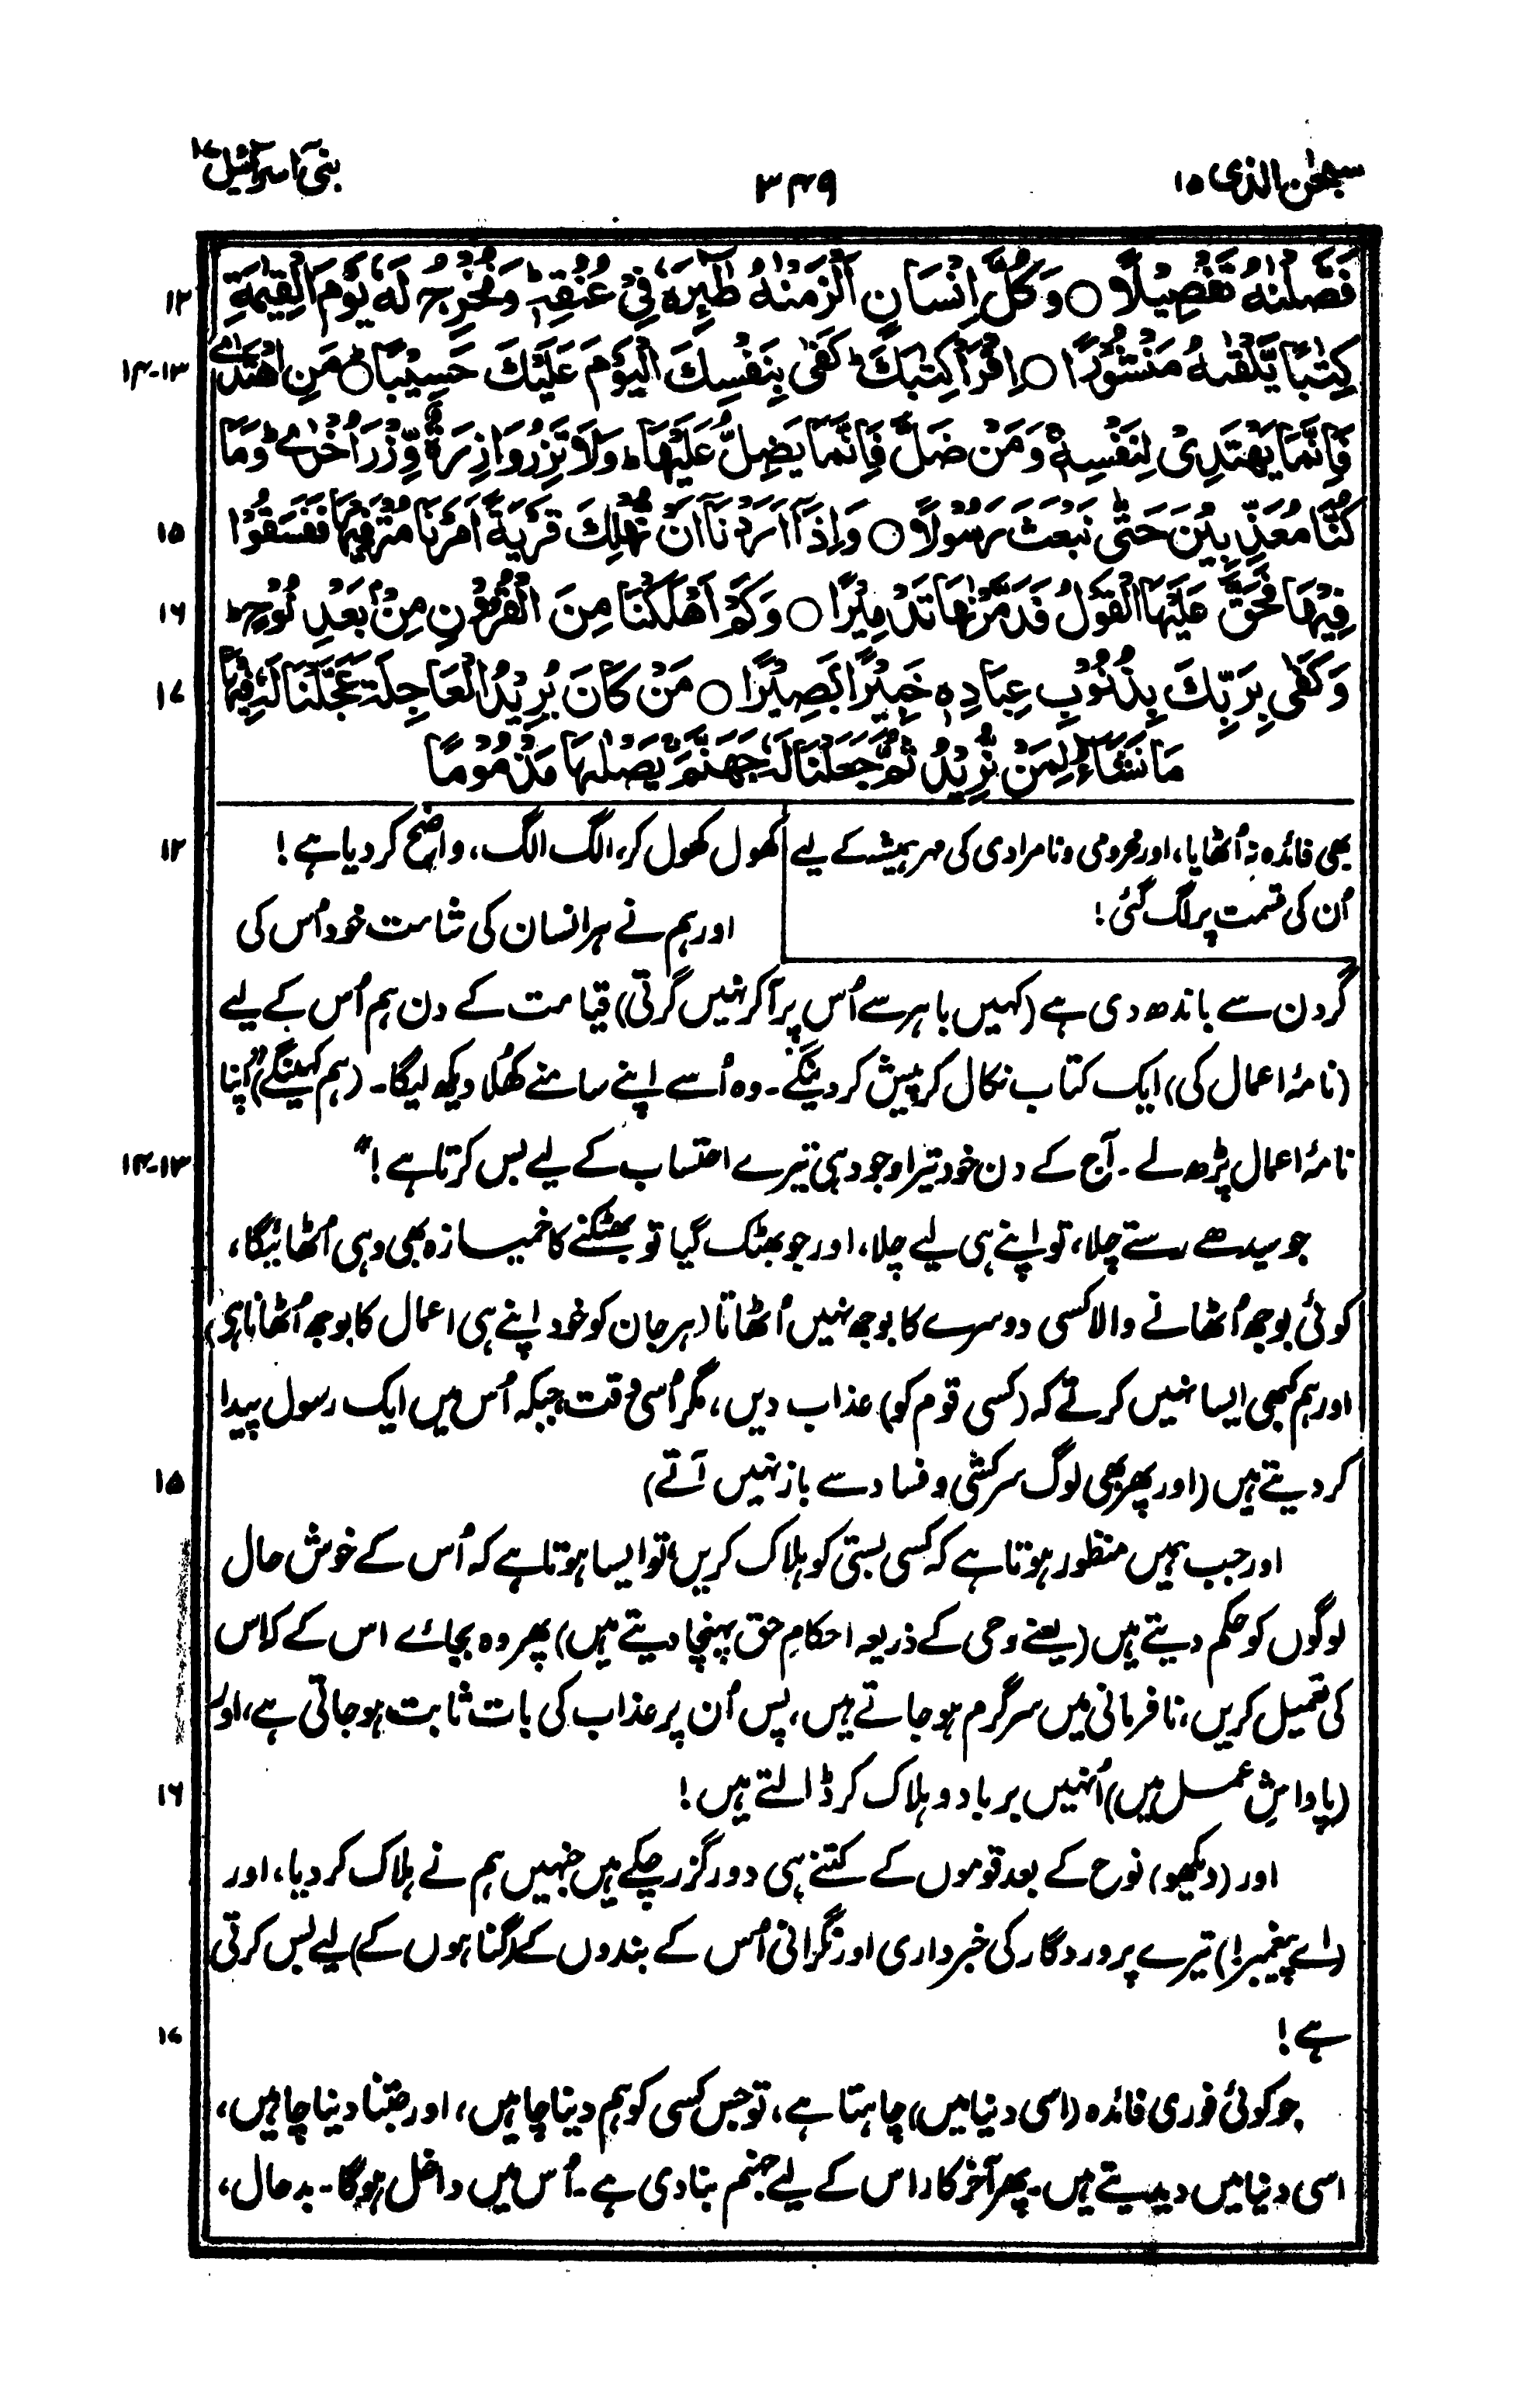 سبحٰن الذی ۱۵
۳۴۹
بنی اسرآئیل ۱۷
فَصَّلْنٰهُ تَفْصِیْلًا ○ وَكُلَّ اِنْسَانٍ اَلْزَمْنٰهُ طٰٓىِٕرَهٗ فِیْ عُنُقِهٖ ؕ وَنُخْرِجُ لَهٗ یَوْمَ الْقِیٰمَةِ ۱۲
كِتٰبًا یَّلْقٰىهُ مَنْشُوْرًا ○ اِقْرَاْ كِتٰبَكَ ؕ كَفٰی بِنَفْسِكَ الْیَوْمَ عَلَیْكَ حَسِیْبًا ؕ ○ مَنِ اهْتَدٰے ۱۳-۱۴
فَاِنَّمَا یَهْتَدِیْ لِنَفْسِهٖ ۚ وَمَنْ ضَلَّ فَاِنَّمَا یَضِلُّ عَلَیْهَا ؕ وَلَا تَزِرُ وَازِرَةٌ وِّزْرَ اُخْرٰے ؕ وَمَا
كُنَّا مُعَذِّبِیْنَ حَتّٰی نَبْعَثَ رَسُوْلًا ○ وَاِذَآ اَرَدْنَآ اَنْ نُّهْلِكَ قَرْیَةً اَمَرْنَا مُتْرَفِیْهَا فَفَسَقُوْا ۱۵
فِیْهَا فَحَقَّ عَلَیْهَا الْقَوْلُ فَدَمَّرْنٰهَا تَدْمِیْرًا ○ وَكَمْ اَهْلَكْنَا مِنَ الْقُرُوْنِ مِنْۢ بَعْدِ نُوْحٍ ؕ ۱۶
وَكَفٰی بِرَبِّكَ بِذُنُوْبِ عِبَادِهٖ خَبِیْرًۢا بَصِیْرًا ○ مَنْ كَانَ یُرِیْدُ الْعَاجِلَةَ عَجَّلْنَا لَهٗ فِیْهَا ۱۷
مَا نَشَآءُ لِمَنْ نُّرِیْدُ ثُمَّ جَعَلْنَا لَهٗ جَهَنَّمَ ۚ یَصْلٰىهَا مَذْمُوْمًا
بھی فائدہ نہ اُٹھایا، اور محرومی و نامرادی کی مہر ہمیشہ کے لیے
اُن کی قسمت پر لگ گئی!
کھول کھول کر، الگ الگ، واضح کر دیا ہے! ۱۲
اور ہم نے ہر انسان کی شامت خود اُس کی
گردن سے باندھ دی ہے (کہیں باہر سے اُس پر آکر نہیں گرتی) قیامت کے دن ہم اُس کے لیے
(نامۂ اعمال کی) ایک کتاب نکال کر پیش کر دینگے۔ وہ اُسے اپنے سامنے کھُلا دیکھ لیگا۔ (ہم کہینگے) "اپنا
نامۂ اعمال پڑھ لے۔ آج کے دن خود تیرا وجود ہی تیرے احتساب کے لیے بس کرتا ہے!" ۱۳-۱۴
جو سیدھے رستے چلا، تو اپنے ہی لیے چلا، اور جو بھٹک گیا تو بھٹکنے کا خمیازہ بھی وہی اُٹھائیگا،
کوئی بوجھ اُٹھانے والا کسی دوسرے کا بوجھ نہیں اُٹھاتا (ہر جان کو خود اپنے ہی اعمال کا بوجھ اُٹھانا ہے)
اور ہم کبھی ایسا نہیں کرتے کہ (کسی قوم کو) عذاب دیں، مگر اُسی وقت جبکہ اُس میں ایک رسول پیدا
کر دیتے ہیں (اور پھر بھی لوگ سرکشی و فساد سے باز نہیں آتے) ۱۵
اور جب ہمیں منظور ہوتا ہے کہ کسی بستی کو ہلاک کریں تو ایسا ہوتا ہے کہ اُس کے خوش حال
لوگوں کو حکم دیتے ہیں (یعنے وحی کے ذریعہ احکامِ حق پہنچا دیتے ہیں) پھر وہ بجائے اس کے کہ اس
کی تعمیل کریں، نافرمانی میں سرگرم ہو جاتے ہیں، پس اُن پر عذاب کی بات ثابت ہو جاتی ہے، اور
(پاداشِ عمل میں) اُنہیں برباد و ہلاک کر ڈالتے ہیں! ۱۶
اور (دیکھو) نوح کے بعد قوموں کے کتنے ہی دور گزر چکے ہیں جنہیں ہم نے ہلاک کر دیا، اور
(اے پیغمبر!) تیرے پروردگار کی خبرداری اور نگرانی اُس کے بندوں کے گناہوں کے لیے بس کرتی
ہے! ۱۷
جو کوئی فوری فائدہ (اسی دنیا میں) چاہتا ہے، تو جس کسی کو ہم دینا چاہیں، اور جتنا دینا چاہیں،
اسی دنیا میں دیدیتے ہیں۔ پھر آخرکار اس کے لیے جہنم بنا دی ہے۔ اُس میں داخل ہوگا۔ بدحال،